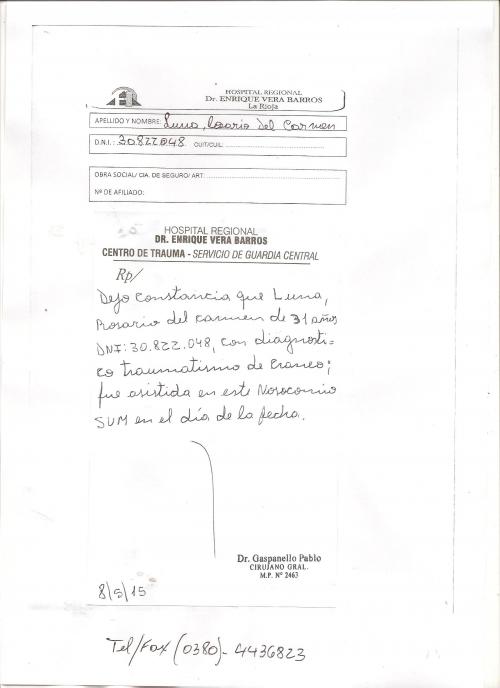 HOSPITAL REGIONAL
Dr. ENRIQUE VERA BARROS
La Rioja
APELLIDO Y NOMBRE: Luna, Rosario Del Carmen
D.N.I.: 30.822.048 CUIT/CUIL:
OBRA SOCIAL/ CIA. DE SEGURO/ ART:
Nº DE AFILIADO:
HOSPITAL REGIONAL
DR. ENRIQUE VERA BARROS
CENTRO DE TRAUMA - SERVICIO DE GUARDIA CENTRAL
Rp/
Dejo constancia que Luna,
Rosario del carmen de 31 años
DNI: 30.822.048, con diagnosti-
co traumatismo de craneo;
fue asistida en este Nosocomio
SUM en el día de la fecha.
Dr. Gaspanello Pablo
CIRUJANO GRAL.
M.P. Nº 2463
8/5/15
Tel/Fax (0380)- 4436823